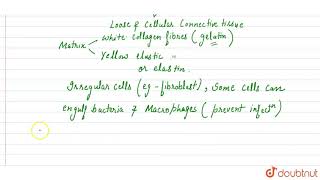 Loose & Cellular Connective tissue
Matrix
White Collagen fibres (gelatin)
Yellow elastic =
or elastin.
Irregular cells (eg - fibroblast), Some cells can
engulf bacteria & Macrophages (prevent infectn)
doubtnut